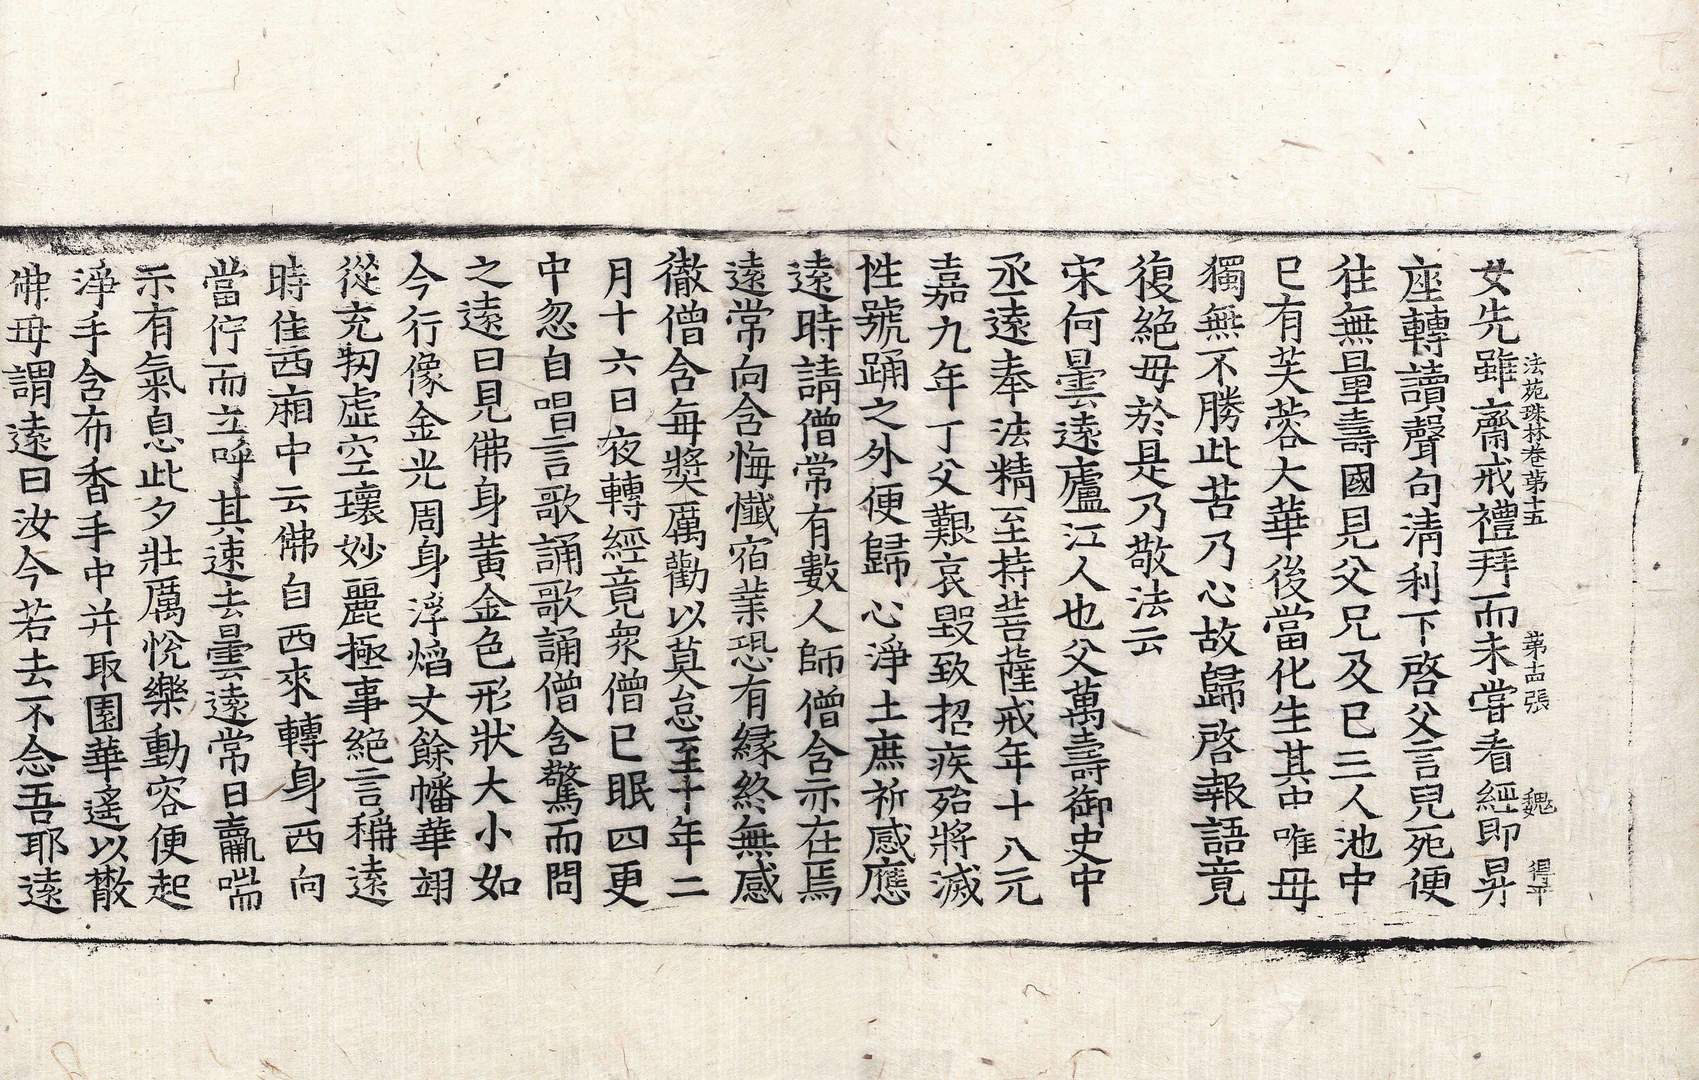 法苑珠林卷第十五　第十四張　魏　得平
女先雖齋戒禮拜而未嘗看經即昇
座轉讀聲句清利下啓父言兒死便
往無量壽國見父兄及已三人池中
已有芙蓉大華後當化生其中唯母
獨無不勝此苦乃心故歸啓報語竟
復絕母於是乃敬法云
宋何曇遠廬江人也父萬壽御史中
丞遠奉法精至持菩薩戒年十八元
嘉九年丁父艱哀毀致招疾殆將滅
性號踊之外便歸心淨土庶祈感應
遠時請僧常有數人師僧含亦在焉
遠常向含悔懺宿業恐有緣終無感
徹僧含每獎厲勸以莫怠至十年二
月十六日夜轉經竟衆僧已眠四更
中忽自唱言歌誦歌誦僧含驚而問
之遠曰見佛身黃金色形狀大小如
今行像金光周身浮熖丈餘幡華翊
從充牣虛空瓌妙麗極事絕言稱遠
時住西廂中云佛自西來轉身西向
當佇而立呼其速去曇遠常日羸喘
示有氣息此夕壯厲悅樂動容便起
淨手含布香手中并取園華遙以散
佛母謂遠曰汝今若去不念吾耶遠